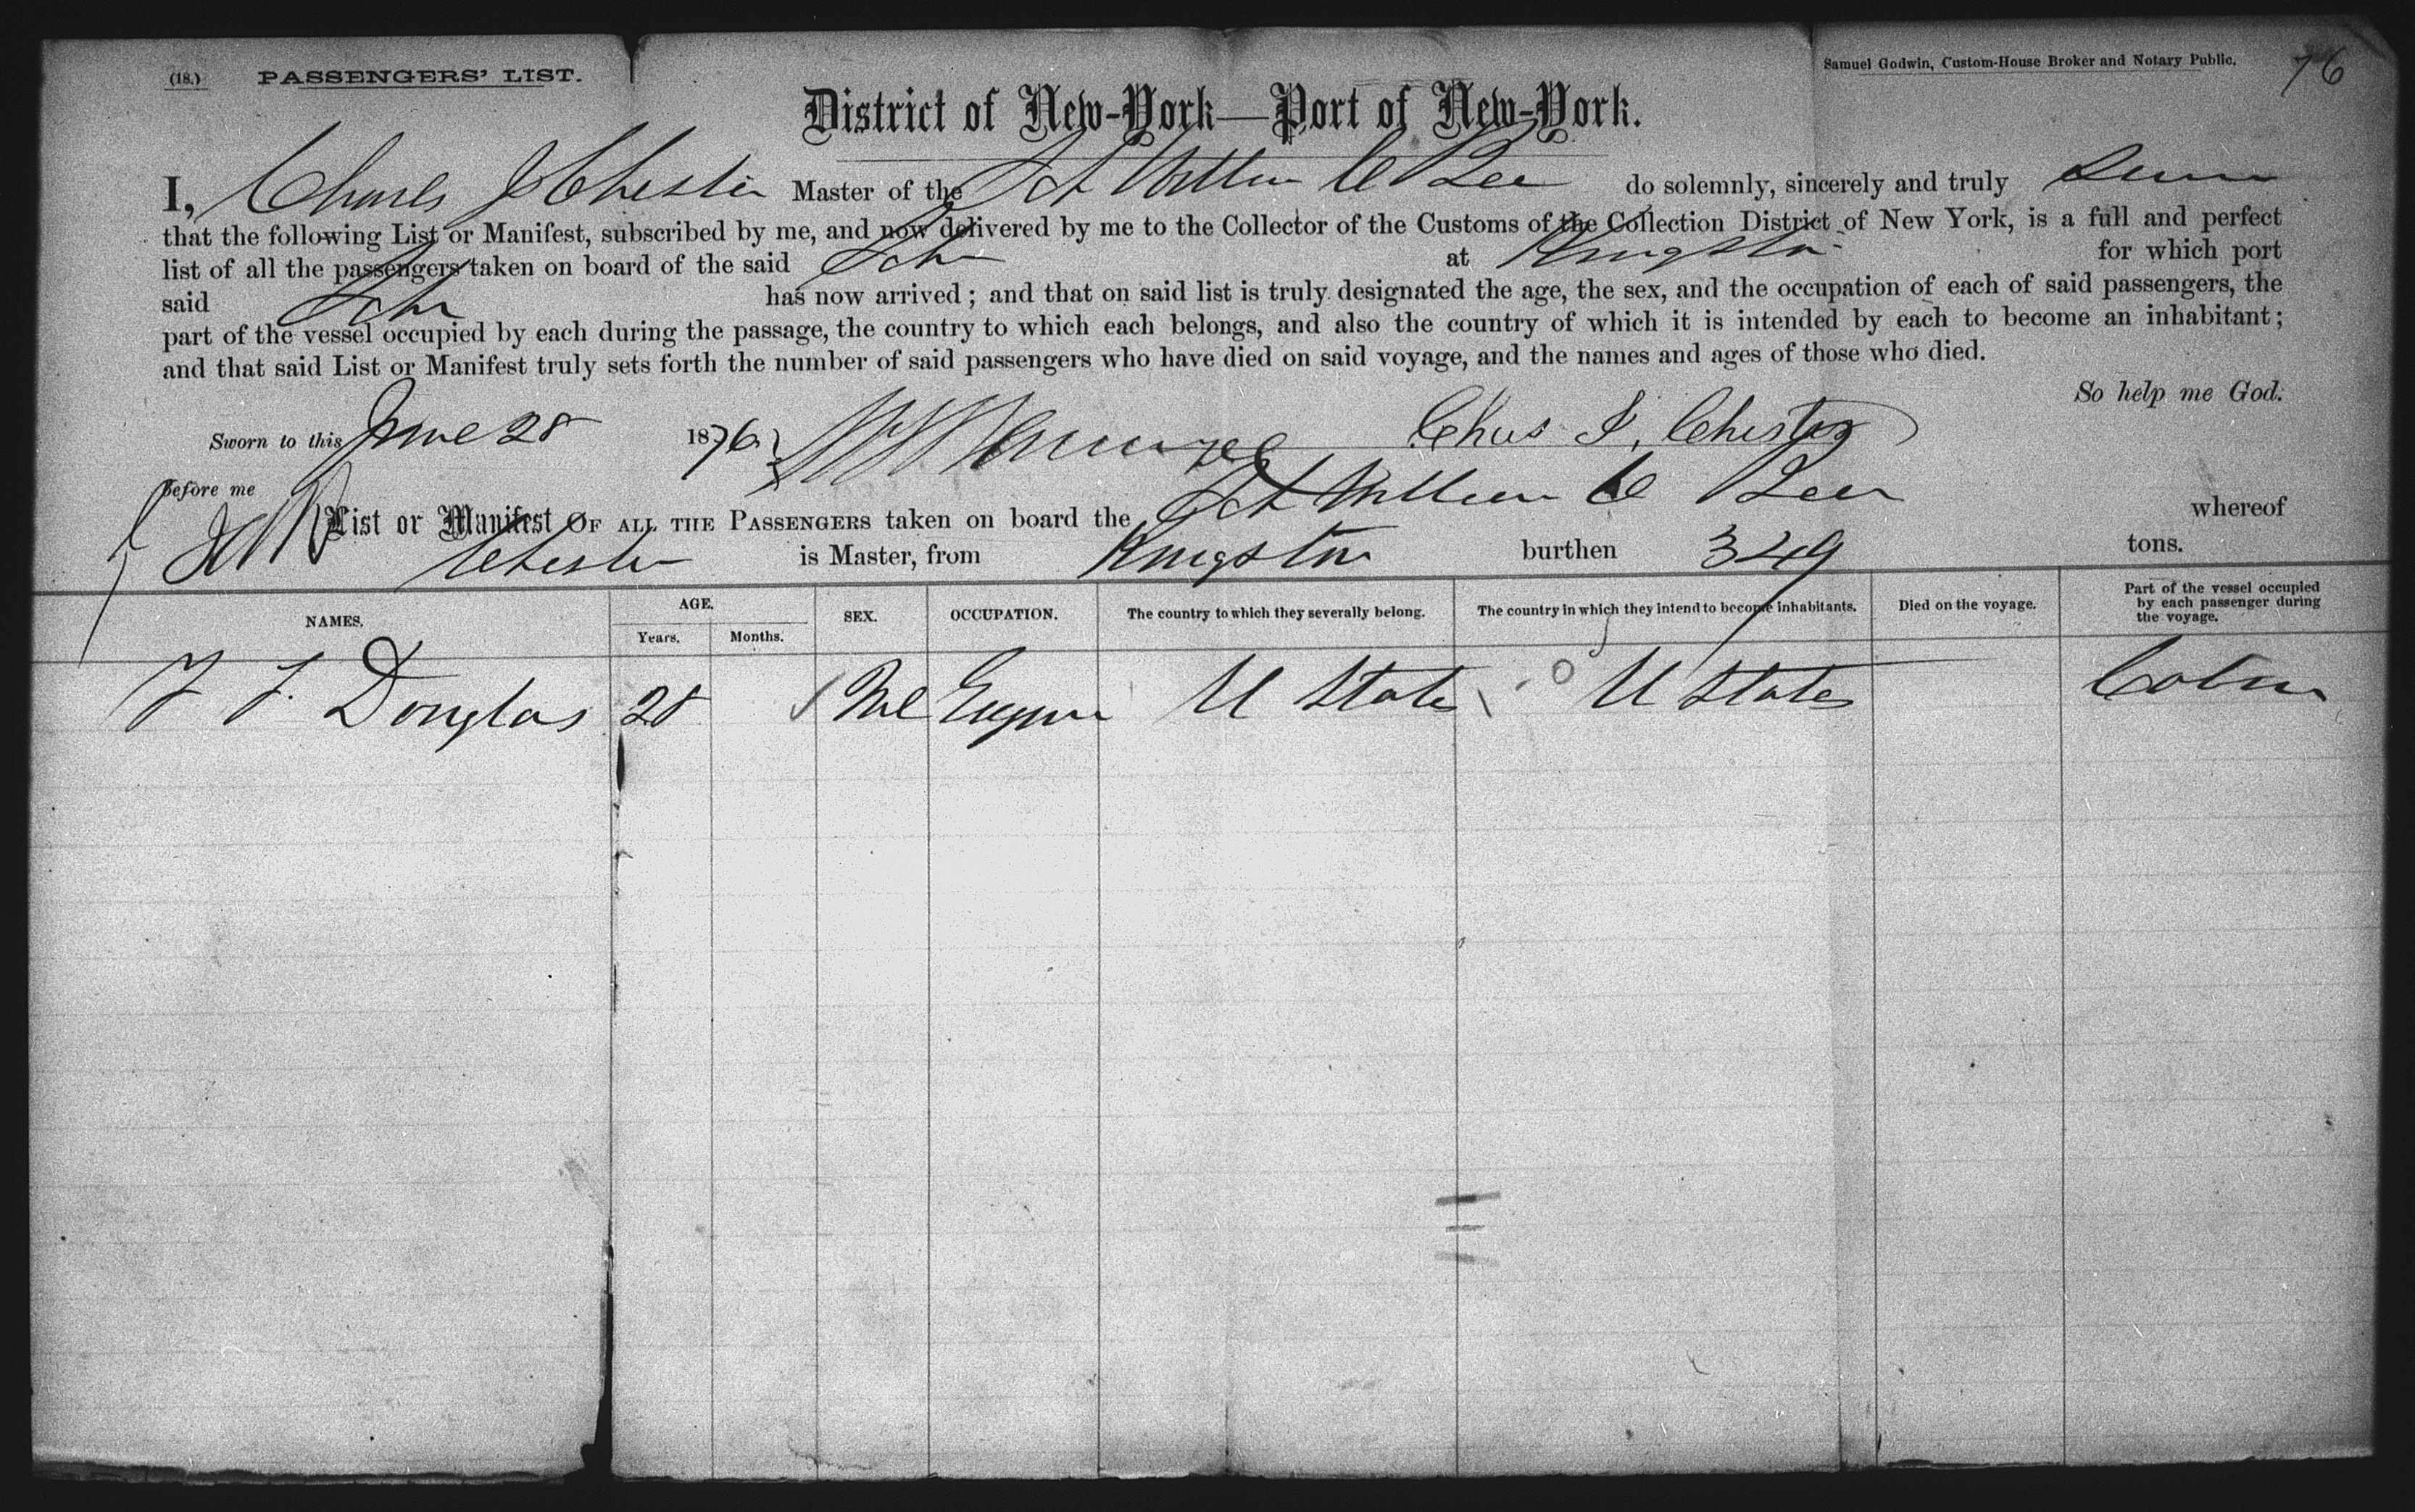 (18.) PASSENGERS' LIST. Samuel Godwin, Custom-House Broker and Notary Public. 76
District of New-York—Port of New-York.
I, Charles J Chester Master of the do solemnly, sincerely and truly
that the following List or Manifest, subscribed by me, and now delivered by me to the Collector of the Customs of the Collection District of New York, is a full and perfect
list of all the passengers taken on board of the said Schr at Kingston for which port
said Schr has now arrived; and that on said list is truly designated the age, the sex, and the occupation of each of said passengers, the
part of the vessel occupied by each during the passage, the country to which each belongs, and also the country of which it is intended by each to become an inhabitant;
and that said List or Manifest truly sets forth the number of said passengers who have died on said voyage, and the names and ages of those who died.
So help me God.
Sworn to this June 28 1876. Chas J. Chester
before me
List or Manifest OF ALL THE PASSENGERS taken on board the whereof
Chester is Master, from Kingston burthen 349 tons.
NAMES. AGE. SEX. OCCUPATION. The country to which they severally belong. The country in which they intend to become inhabitants. Died on the voyage. Part of the vessel occupied by each passenger during the voyage.
Years. Months.
Douglas 28 U States U States Cabin